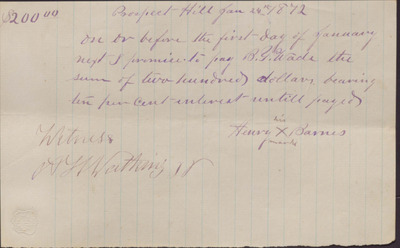 $200.00
Prospect Hill Jan 24th 1872
On or before the first day of January
next I promise to pay B. G. Wade the
sum of two hundred dollars bearing
ten per cent interest untill payed
his
Henry X Barnes
mark
Witness
Watkins Jr